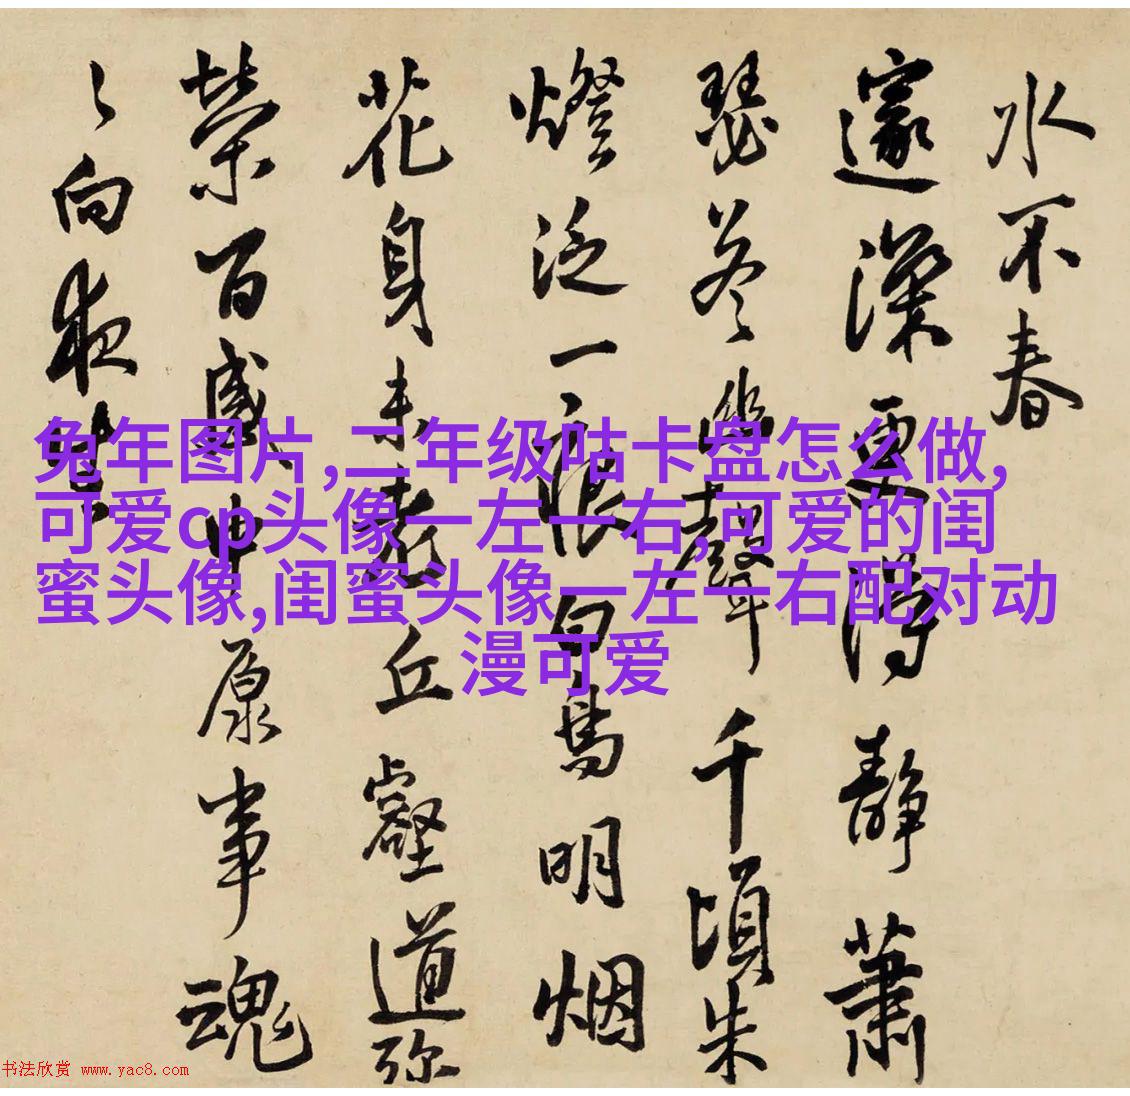 水不春
邃深更得静蕭
瑟幽聲千頃朱
燈泛一痕白鳥明烟
花身未老丘壑道弥
榮百感中原事魂
向夜
兔年图片,二年级咕卡盘怎么做,
可爱cp头像一左一右,可爱的闺
蜜头像,闺蜜头像一左一右配对动
漫可爱
书法欣赏 www.yac8.com